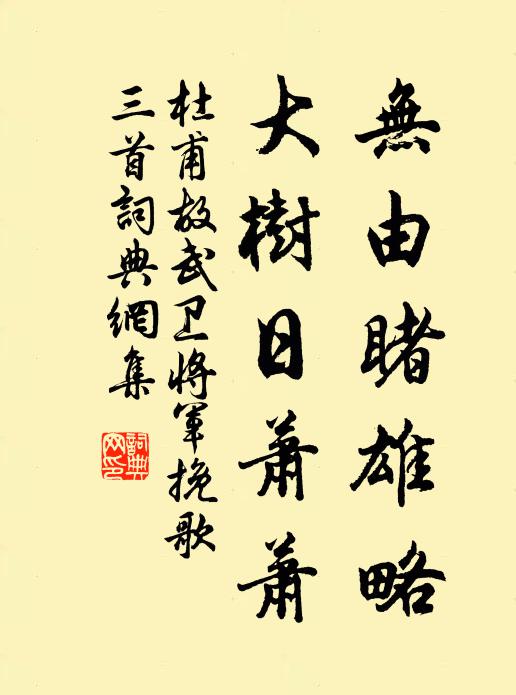 無由睹雄略
大樹日蕭蕭
杜甫故武卫將軍挽歌
三首詞典網集
詞典網印